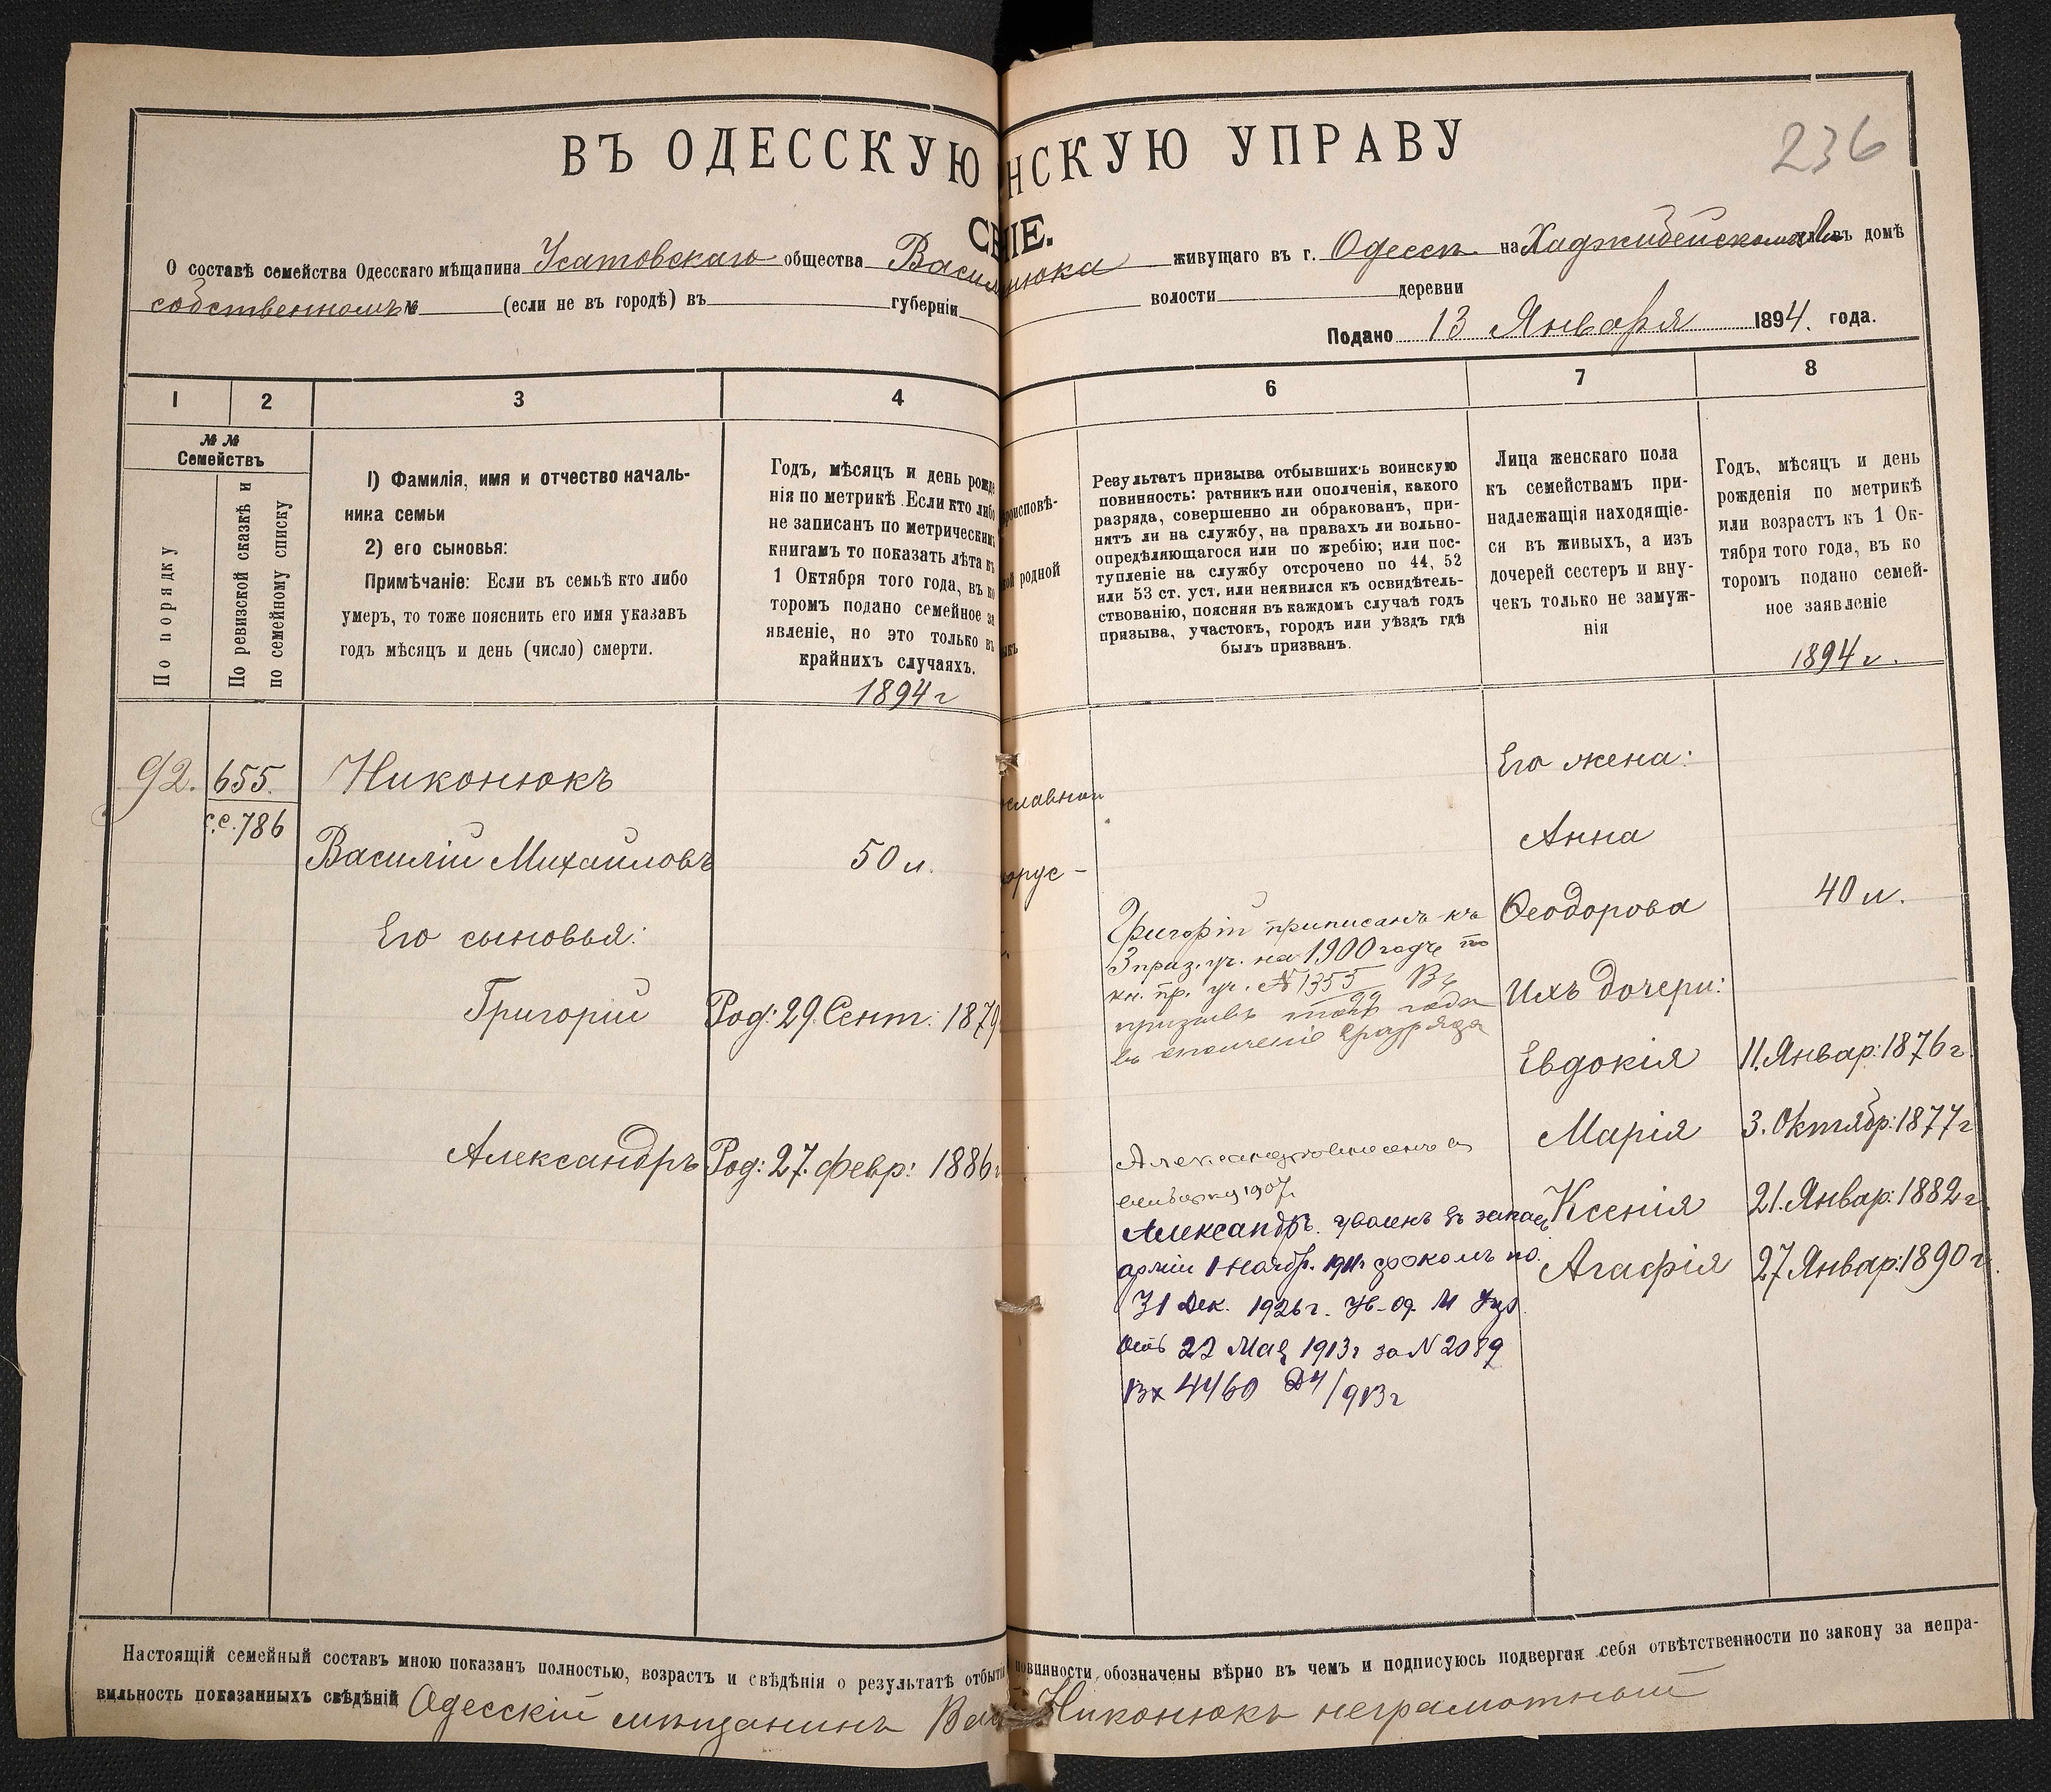 ВЪ ОДЕССКУЮ НСКУЮ УПРАВУ
236
СЕ НІЕ.
О составѣ семейства Одесскаго мѣщанина Усатовскаго общества Васил нюка живущаго въ г. Одессѣ на Хаджибейском въ домѣ
собственномъ № (если не въ городѣ) въ губерніи волости деревни
Подано 13 Января 1894. года.
1 2 3 4 6 7 8
№ №
Семействъ
По порядку
По ревизской сказкѣ и
по семейному списку
1) Фамилія, имя и отчество началь-
ника семьи
2) его сыновья:
Примѣчаніе: Если въ семьѣ кто либо
умеръ, то тоже пояснить его имя указавъ
годъ мѣсяцъ и день (число) смерти.
Годъ, мѣсяцъ и день рожде
нія по метрикѣ Если кто либо
не записанъ по метрическимъ
книгамъ то показать лѣта къ
1 Октября того года, въ ко
торомъ подано семейное за
явленіе, но это только въ
крайнихъ случаяхъ.
1894 г
роисповѣ-
ой родной
ыкъ
Результатъ призыва отбывшихъ воинскую
повинность: ратникъ или ополченія, какого
разряда, совершенно ли обракованъ, при-
нятъ ли на службу, на правахъ ли вольно-
опредѣляющагося или по жребію; или пос-
тупленіе на службу отсрочено по 44, 52
или 53 ст. уст. или неявился къ освидѣтель-
ствованію, поясняя въ каждомъ случаѣ годъ
призыва, участокъ, городъ или уѣздъ гдѣ
былъ призванъ.
Лица женскаго пола
къ семействамъ при-
надлежащія находящіе-
ся въ живыхъ, а изъ
дочерей сестеръ и вну-
чекъ только не замуж-
нія
Годъ, мѣсяцъ и день
рожденія по метрикѣ
или возрастъ къ 1 Ок-
тября того года, въ ко
торомъ подано семей-
ное заявленіе
1894 г.
92. 655.
с.с. 786
Никонюкъ
Василій Михайловъ 50 л.
Его сыновья:
Григорій Род: 29. Сент: 1879
Александръ Род: 27. февр: 1886 г
славной
орус-
Григорій приписанъ къ
3 приз. уч. на 1900 годъ по
кн. пр. уч. № 1355 Въ
призывъ года
въ ополченіе разряда
Александръ
1907.
Александръ. уволенъ въ запасъ
арміи 1 Ноябр. 1911 срокомъ по
31 Дек. 1926 г. Ув-
Отъ 22 Мая 1913 г за N 2089
Вх 4460 /913 г
Его жена:
Анна
Ѳеодорова 40 л.
Ихъ дочери:
Евдокія 11. Январ: 1876 г
Марія 3. Октябр: 1877 г
Ксенія 21. Январ: 1882 г
Агафія 27 Январ: 1890 г.
Настоящій семейный составъ мною показанъ полностью, возрастъ и свѣдѣнія о результатѣ отбыті повинности обозначены вѣрно въ чемъ и подписуюсь подвергая себя отвѣтственности по закону за непра-
вильность показанныхъ свѣдѣній Одесскій мѣщанинъ Вас Никонюкъ неграмотный